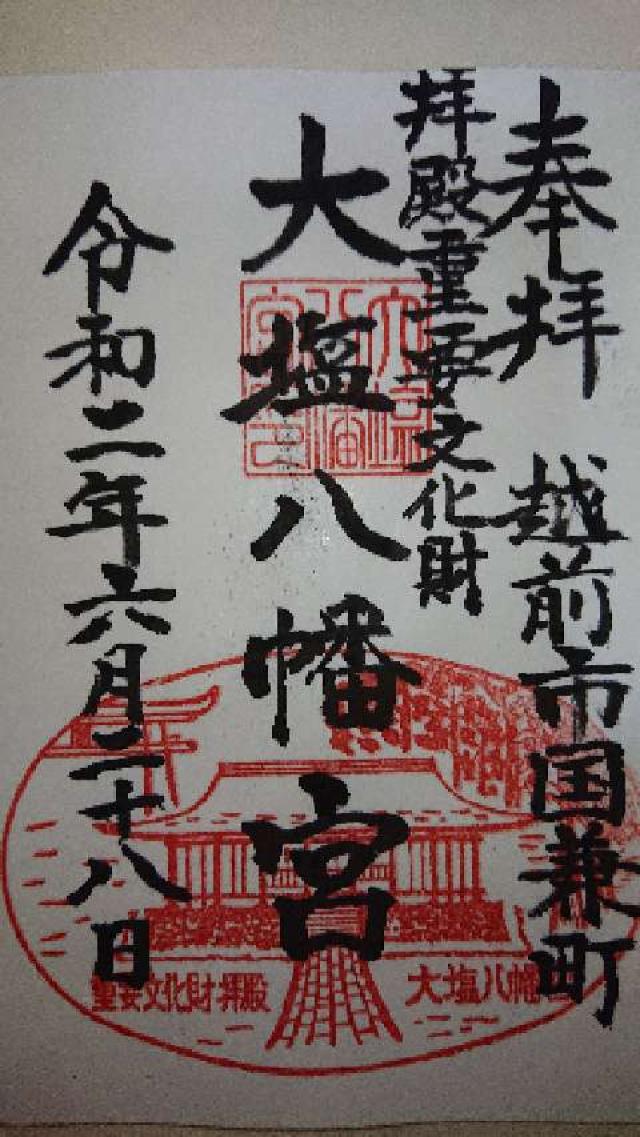 奉拝　越前市国兼町
拝殿重要文化財
大塩八幡宮
令和二年六月二十八日
重要文化財拝殿
大塩八幡宮